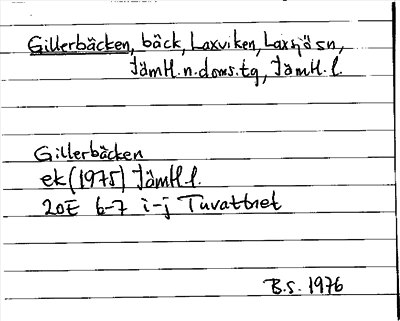 Gillerbäcken, bäck, Laxviken, Laxsjö sn,
Jämtl. n. doms. tg, Jämtl. l.
Gillerbäcken
ek (1975) Jämtl. l.
20E 6-7 i-j Tuvattnet
B.S. 1976